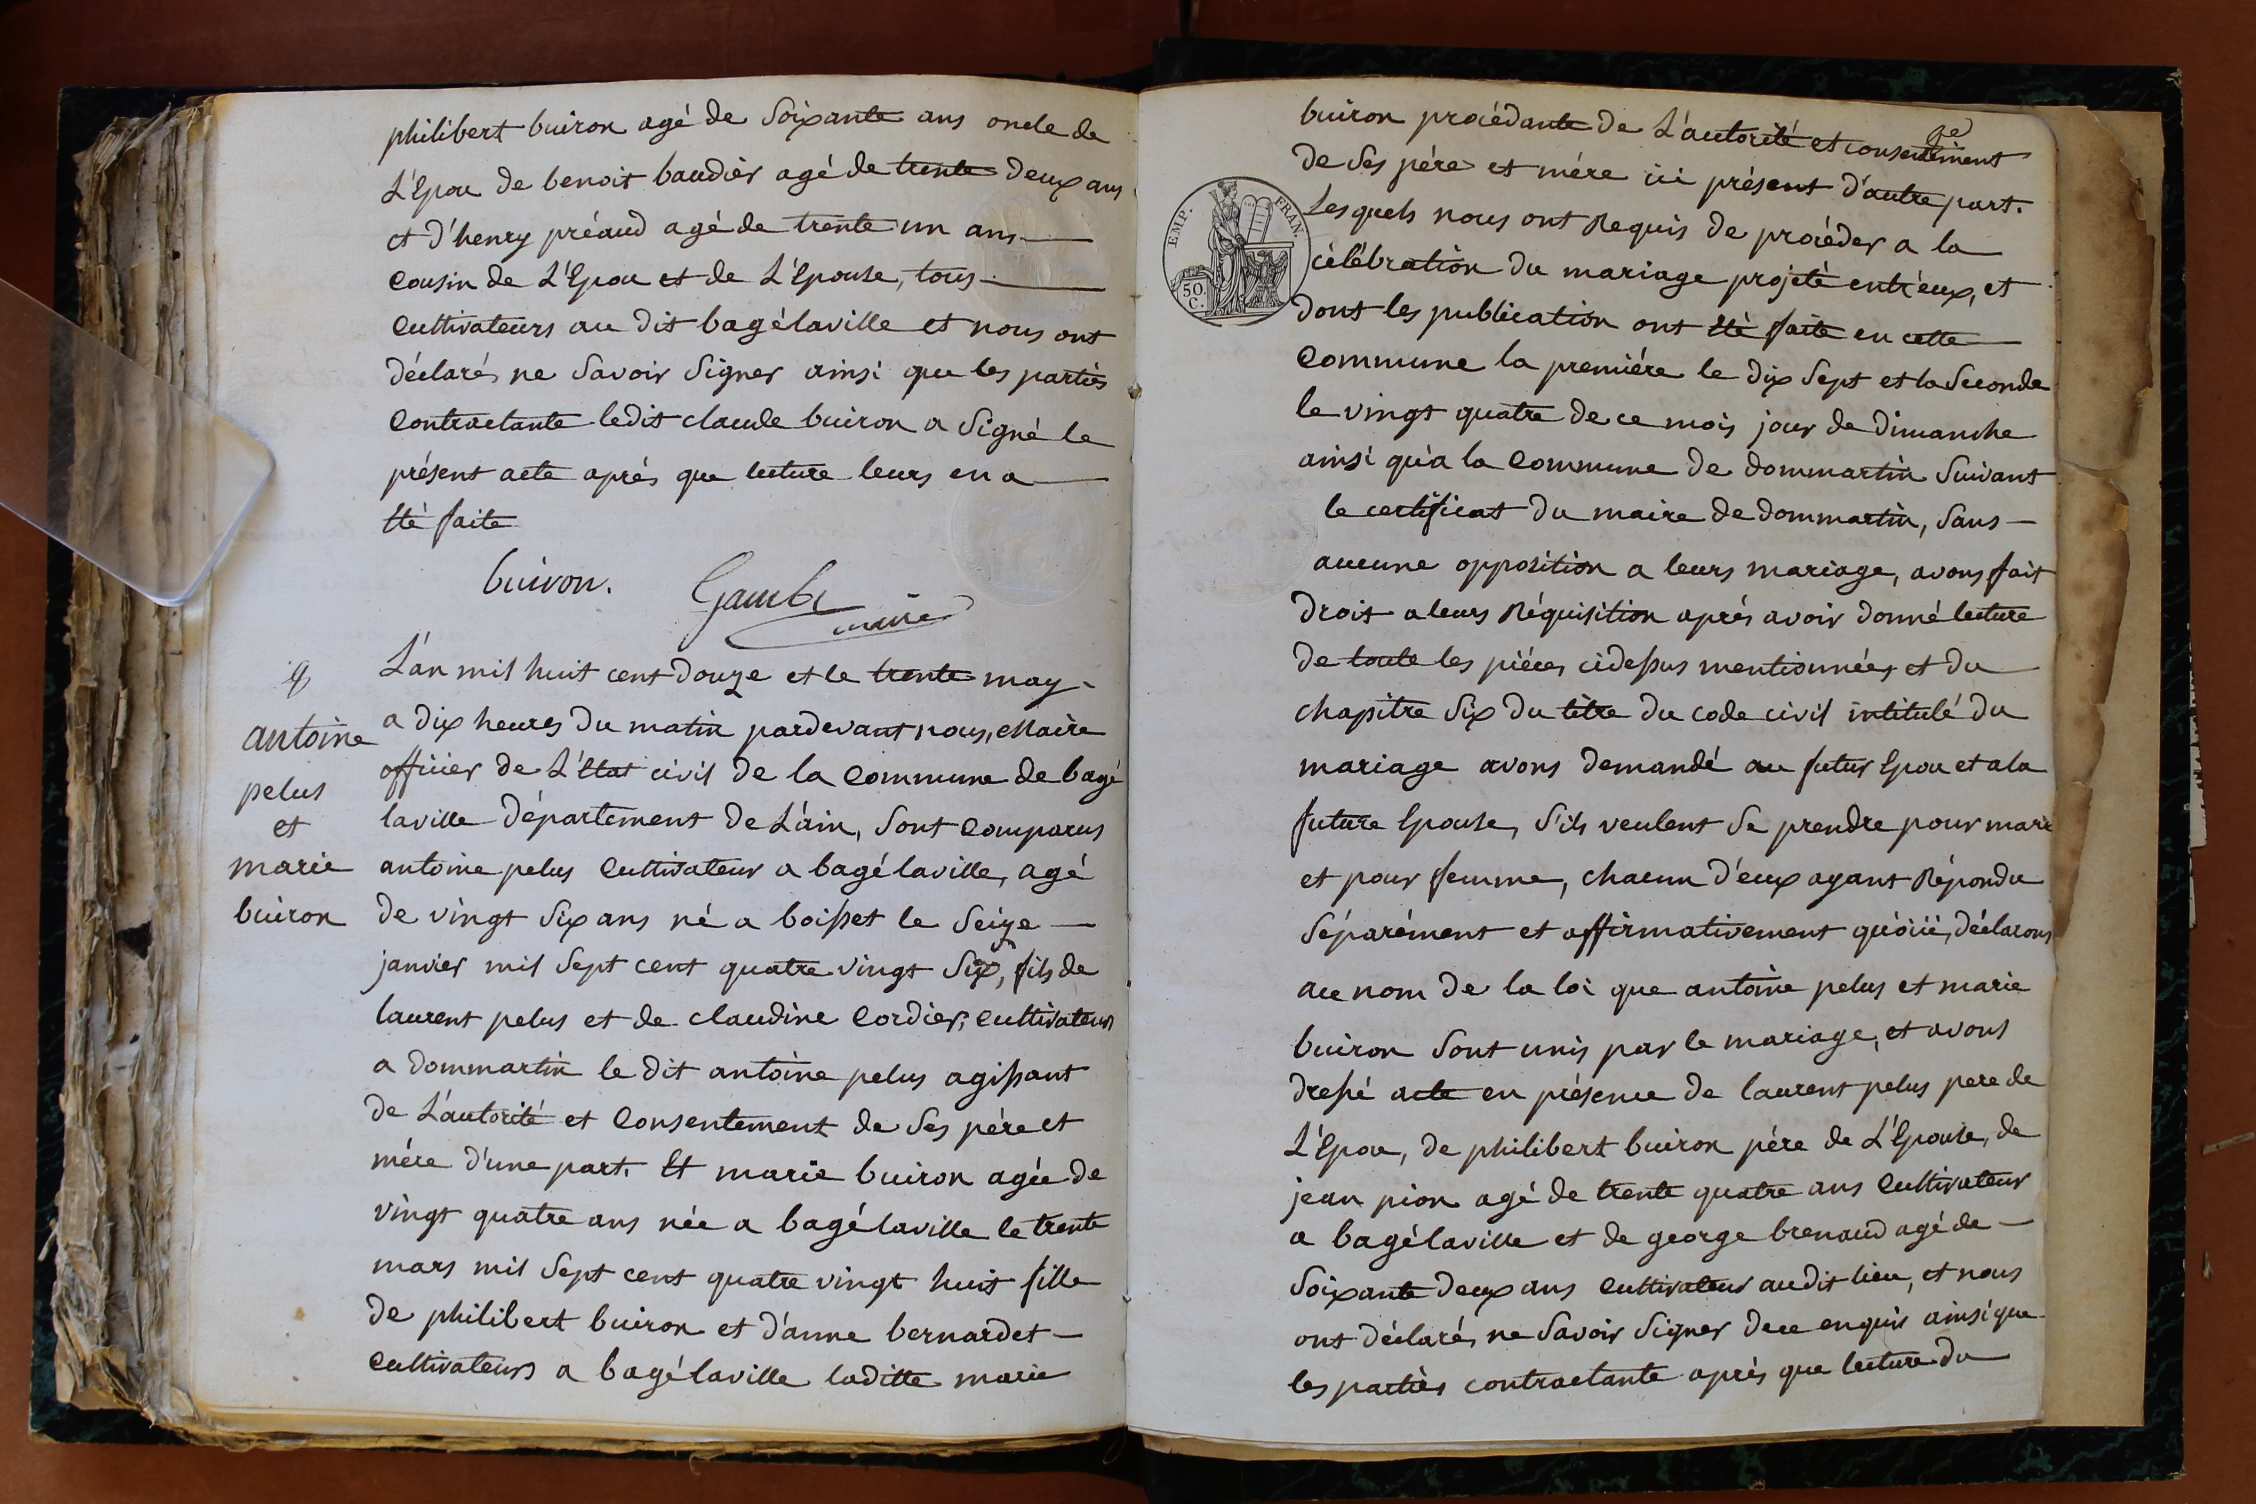 philibert buiron agé de Soixante ans oncle de
L'Epou de benoit baudier agé de trente deux ans
et d'henry préaud agé de trente un ans
Cousin de L'Epou et de L'Epouse, tous
Cultivateurs au dit bagélaville et nous ont
déclaré, ne Savoir Signer ainsi que les partiés
Contractante ledit claude buiron a Signé le
présent acte aprés que lecture leurs en a
Eté faite
buiron.
maire
L'an mil huit cent douze et le trente may
a dix heures du matin pardevant nous, Maire
officier de L'Etat civil de la Commune de bagé
laville département de L'ain, Sont Comparus
antoine pelus Cultivateur a bagé laville, agé
de vingt Six ans né a boisset le Seize
janvier mil Sept cent quatre vingt Six, fils de
laurent pelus et de claudine Cordier, Cultivateurs
a dommartin le dit antoine pelus agissant
de L'autorité et Consentement de Ses pére et
mére d'une part. Et marie buiron agée de
vingt quatre ans née a bagélaville le trente
mars mil Sept cent quatre vingt huit fille
de philibert buiron et d'anne bernardet
Cultivateurs a bagélaville laditte marie
antoine
pelus
et
marie
buiron
buiron procédante de L'autorité et consentement
de Ses pére et mére ici présent d'autre part.
Lesquels nous ont Requis de procéder a la
célébration du mariage projeté entr'eux, et
dont les publication ont Eté faite en cette
Commune la premiére le dix Sept et la Seconde
le vingt quatre de ce mois jour de dimanche
ainsi qu'a la Commune de dommartin Suivant
le certificat du maire de dommartin, Sans
aucune opposition a leurs mariage, avons fait
droit a leurs Réquisition aprés avoir donné lecture
de toute les piéces cidessus mentionnées et du
chapitre Six du titre du code civil intitulé du
mariage avons demandé au futur Epou et a la
future Epouse, S'ils veulent Se prendre pour mari
et pour femme, chacun d'eux ayant Répondu
Séparément et affirmativement qu'oüi, déclarons
au nom de la loi que antoine pelus et marie
buiron Sont unis par le mariage, et avons
dressé acte en présence de laurent pelus pere de
L'Epou, de philibert buiron pére de L'Epouse, de
jean pion agé de trente quatre ans Cultivateur
a bagélaville et de george brenaud agé de
Soixante deux ans Cultivateur audit lieu, et nous
ont déclaré, ne Savoir Signer de ce enquis ainsi que
les partiés contractante aprés que lecture du
EMP. FRAN.
50
C.